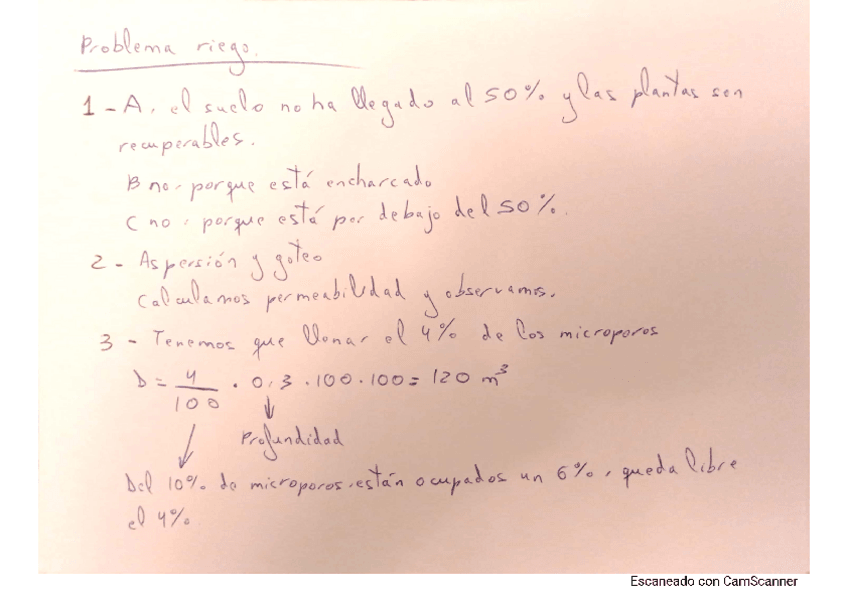 Problema riego.
1 - A, el suelo no ha llegado al 50% y las plantas son
recuperables.
B no, porque está encharcado
C no, porque está por debajo del 50%.
2 - Aspersión y goteo
Calculamos permeabilidad y observamos.
3 - Tenemos que llenar el 4% de los microporos
D = 4/100 · 0,3 · 100 · 100 = 120 m³
Profundidad
Del 10% de microporos, están ocupados un 6%, queda libre
el 4%
Escaneado con CamScanner